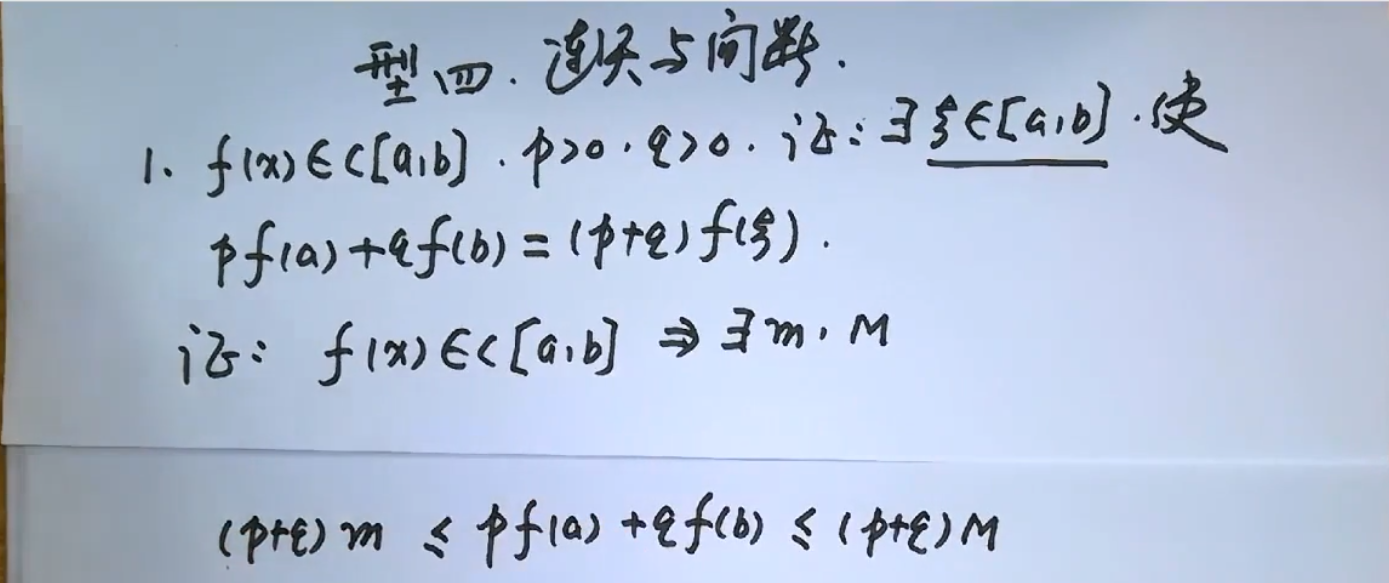 型四. 连续与间断.
1. f(x)∈C[a,b]. p>0. q>0. 证: ∃ξ∈[a,b]. 使
pf(a)+qf(b)=(p+q)f(ξ).
证: f(x)∈C[a,b] ⇒ ∃m, M
(p+q)m ≤ pf(a)+qf(b) ≤ (p+q)M